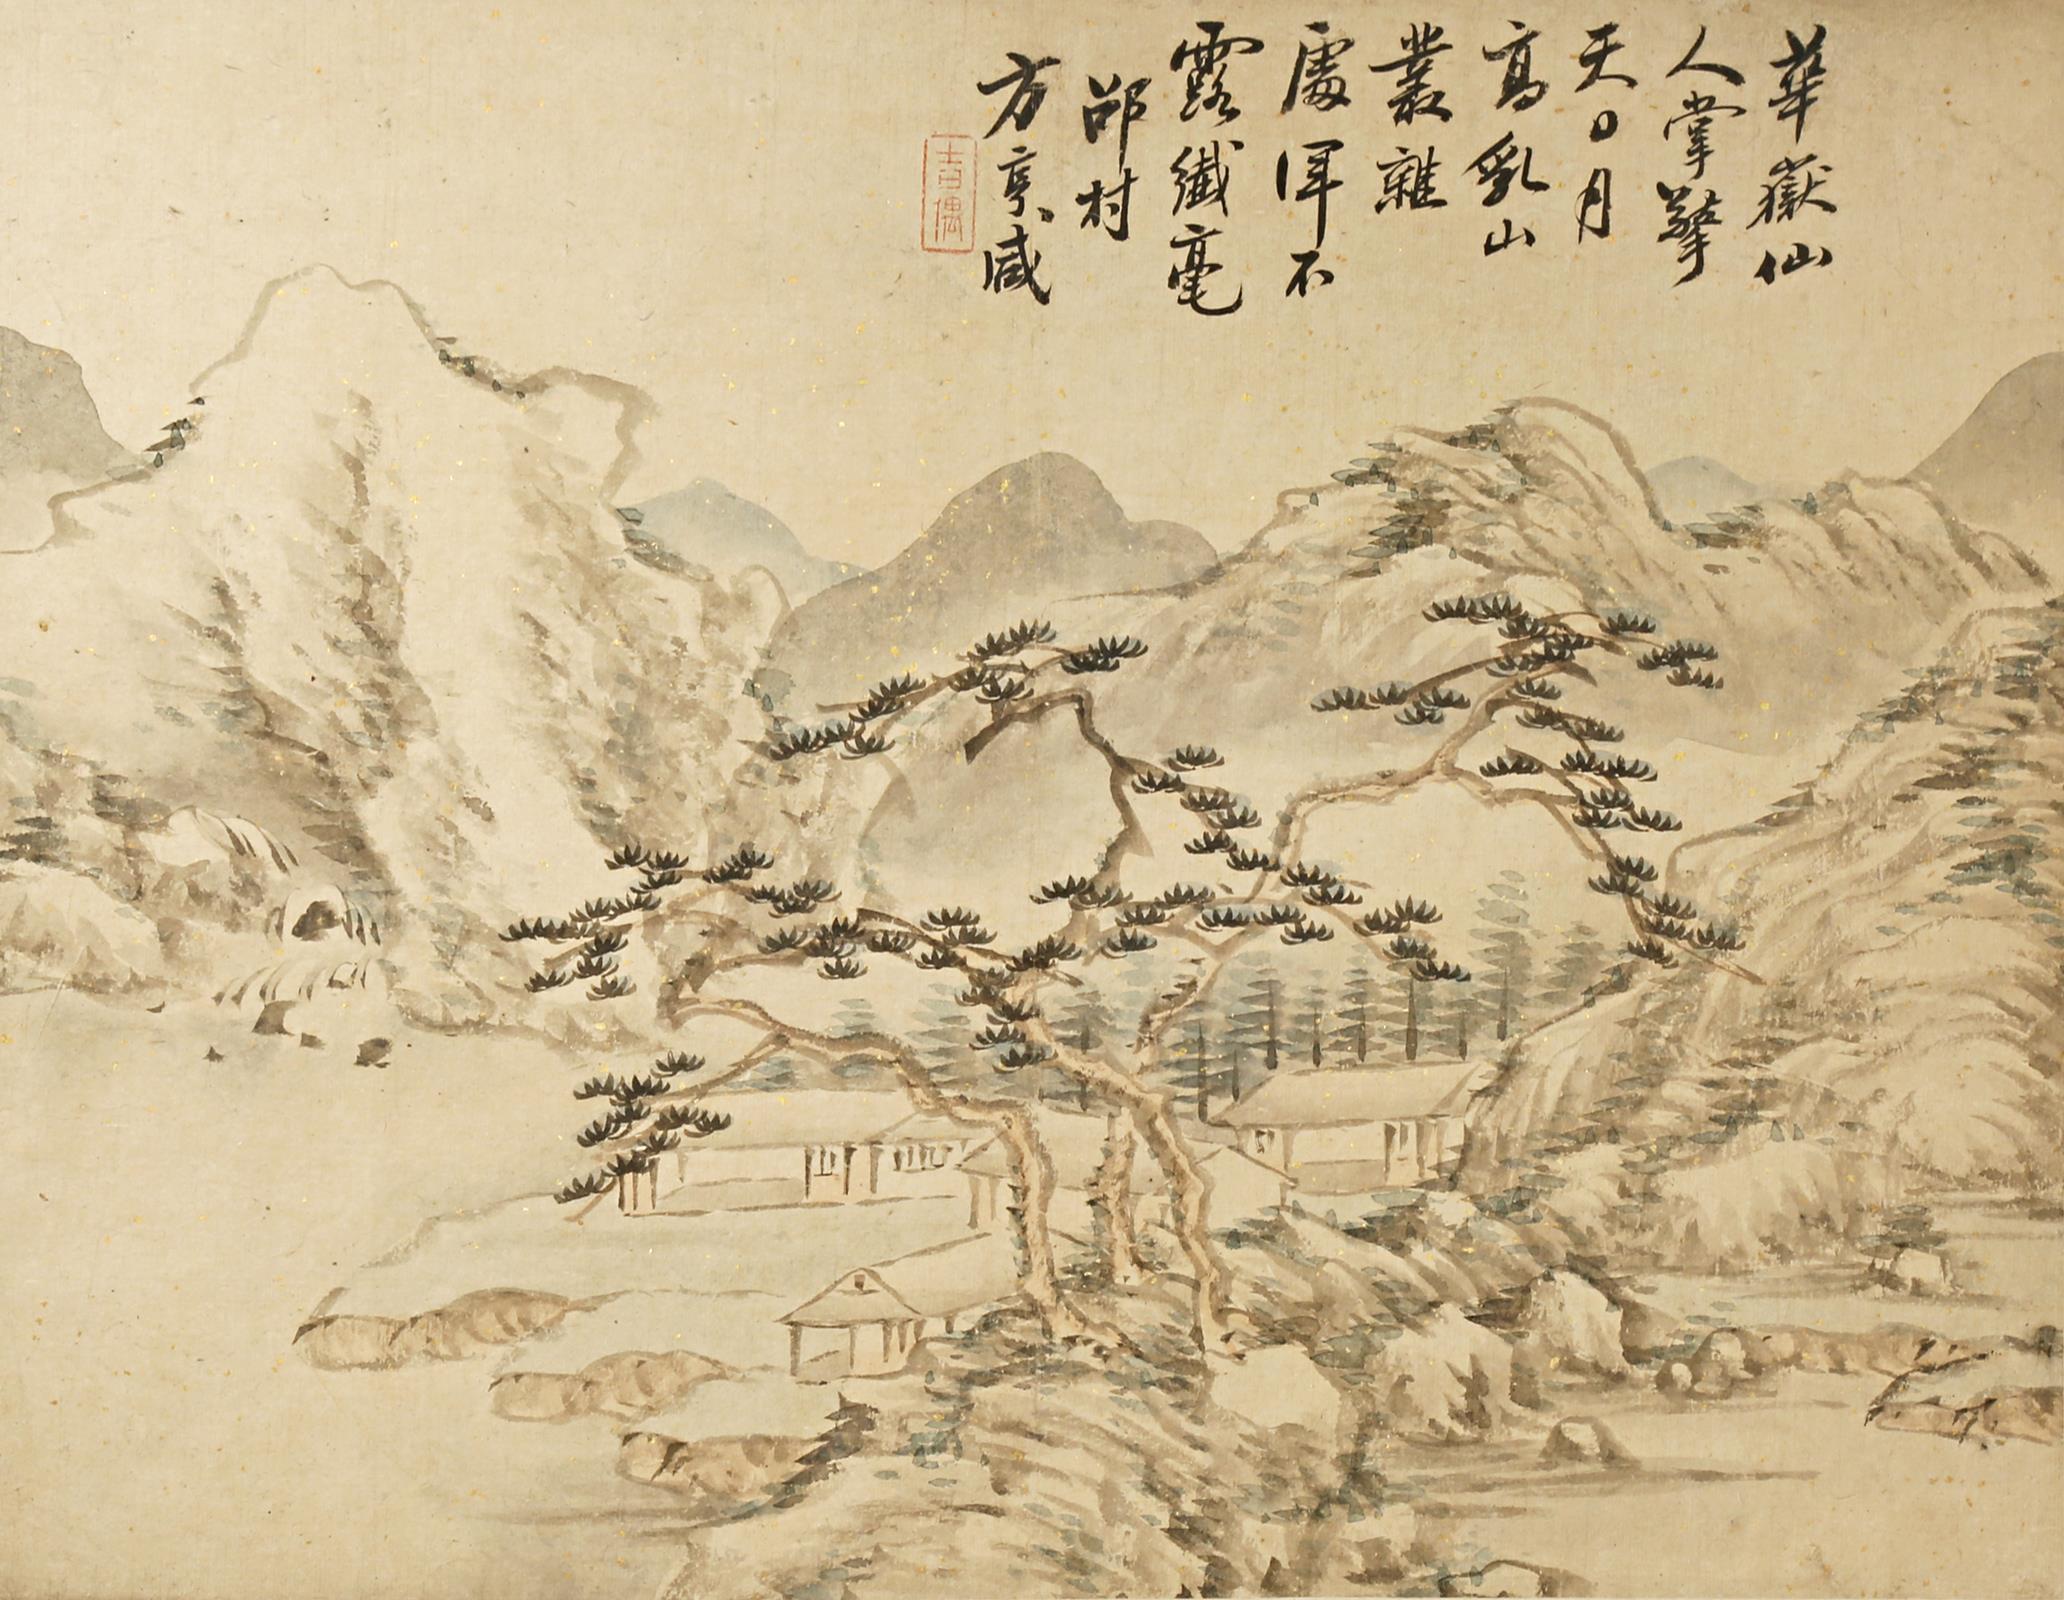 華嶽仙
人掌擎
天日月
高亂山
叢雜
處渾不
露纖毫
邵村
方亨咸
吉偶